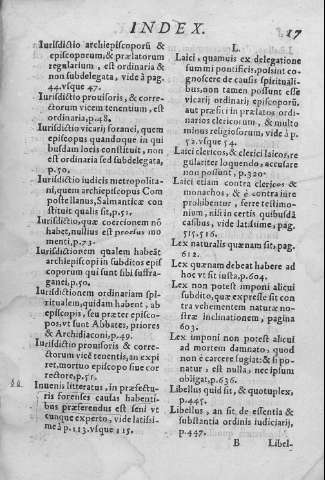 INDEX.
17
Iurisdictio archiepiscoporũ &
episcoporum, & prælatorum
regularium, est ordinaria &
non subdelegata, vide à pag.
44. vsque 47.
Iurisdictio prouisoris, & corre-
ctorum vicem tenentium, est
ordinaria, p.48.
Iurisdictio vicarij foranei, quem
episcopus quandoque in qui
busdam locis constituit, non
est ordinaria sed subdelegata,
p.50.
Iurisdictio iudicis metropolita-
ni, quem archiepiscopus Com
postellanus, Salmanticæ con
stituit qualis sit, p.51.
Iurisdictio, quæ coercionem nõ
habet, nullius est prorsus mo
menti, p.73.
Iurisdictionem qualem habeãt
archiepiscopi in subditos epis
coporum qui sunt sibi suffra-
ganei, p.50.
Iurisdictionem ordinariam spi-
ritualem, quidam habent, vb
episcopis, seu præter episco-
pos, vt sunt Abbates, priores
& Archidiaconi, p.49.
Iurisdictio prouisoris & corre-
ctorum vicẽ tenentis, an expi
ret, mortuo episcopo siue cor
rectore, p.51.
Iuuenis litteratus, in præfectu-
ris forenses causas habenti-
bus præferendus est seni vt
cunque experto, vide latissi-
mè à p.113. vsque 115.
L.
Laici, quamuis ex delegatione
summi pontificis, possint co-
gnoscere de causis spirituali-
bus, non tamen possunt esse
vicarij ordinarij episcoporũ,
aut præfecti in prælatos ordi-
narios clericorum, & multo
minus religiosorum, vide à p.
52. vsque 54.
Laici clericos, & clerici laicos, re
gulariter loquendo, accusare
non possunt, p.320.
Laici etiam contra clericos &
monachos, & è contra iure
prohibentur, ferre testimo-
nium, nisi in certis quibusdã
casibus, vide latissime, pag.
515. 516.
Lex naturalis quænam sit, pag.
612.
Lex quænam debeat habere ad
hoc vt sit iusta, p.604.
Lex non potest imponi alicui
subdito, quæ expresse sit con
tra vehementem naturæ no-
stræ inclinationem, pagina
603.
Lex imponi non potest alicui
ad mortem damnato, quod
non è carcere fugiat: & si po-
natur, est nulla, nec ipsum
obligat, p.636.
Libellus quid sit, & quotuplex,
p.445.
Libellus, an sit de essentia &
substantia ordinis iudiciarij,
p.447.
B
Libel-